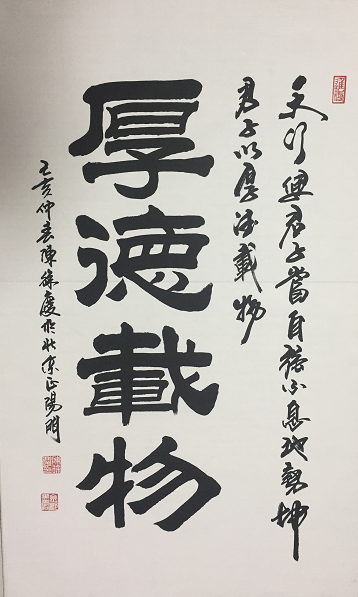 天行健君子當自強不息地勢坤
君子以厚德載物
厚德載物
亥仲春陳慶於北京正陽門